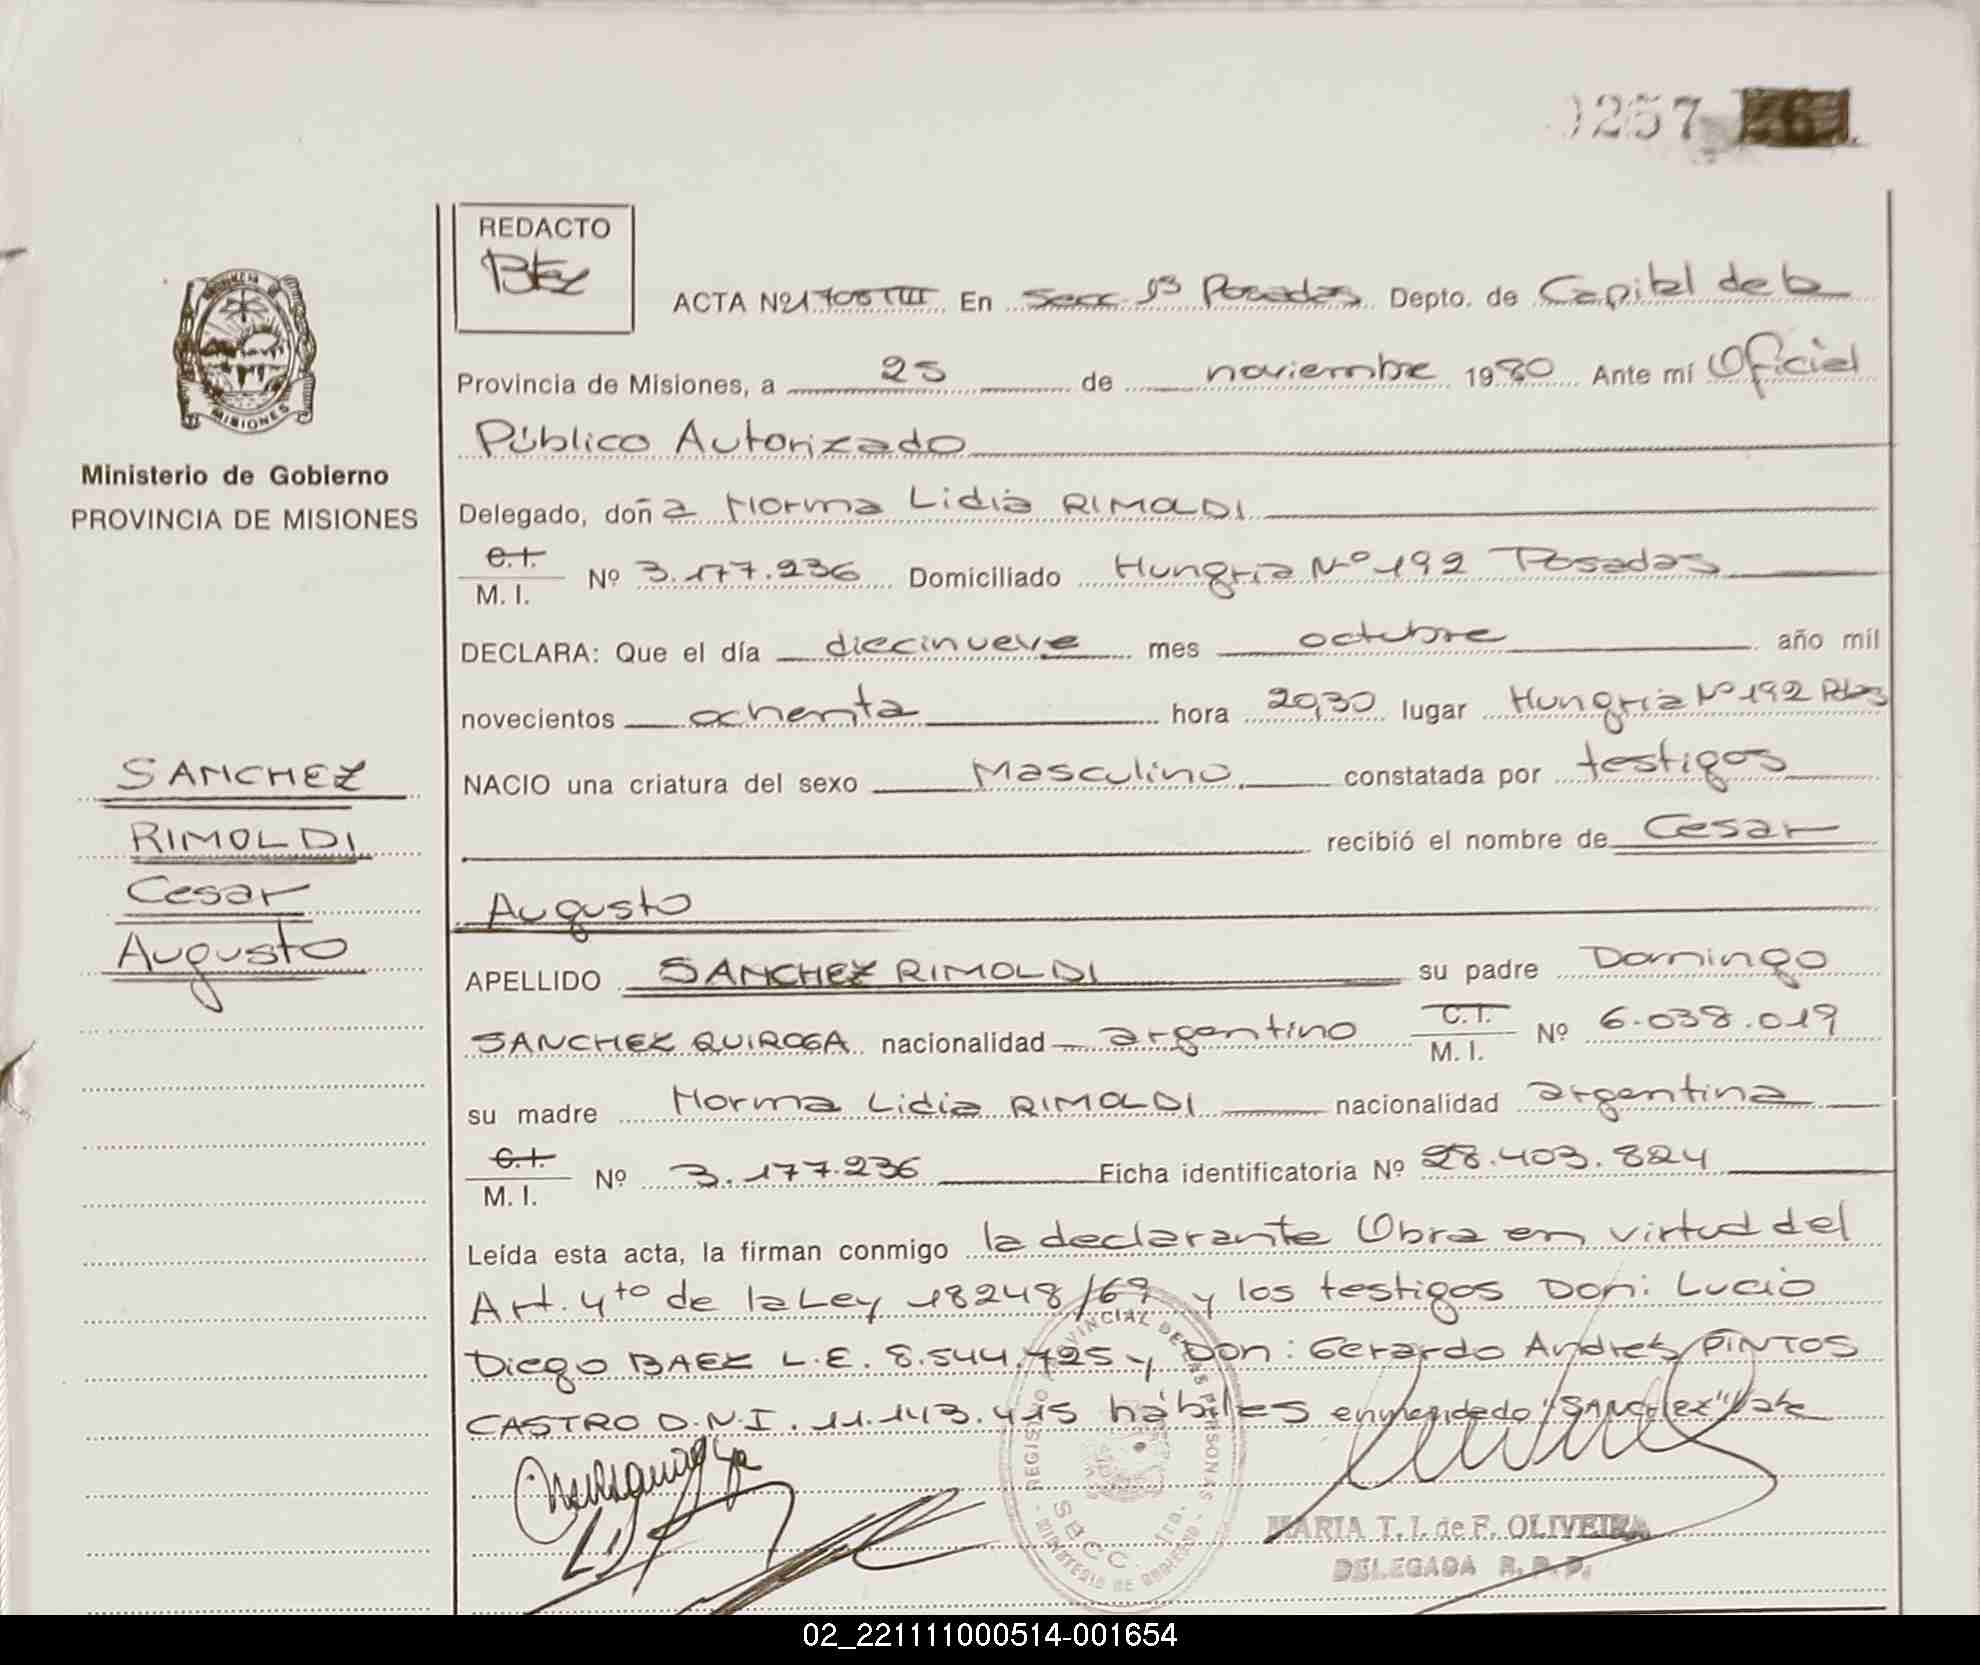 0257
REDACTO
ACTA Nº 1706 TIII En Secc. 1ª Posadas Depto. de Capital de la
Provincia de Misiones, a 25 de noviembre 1980 Ante mí Oficial
Público Autorizado
Ministerio de Gobierno
PROVINCIA DE MISIONES
MISIONES
Delegado, doña Norma Lidia RIMOLDI
C.I. M. I. Nº 3.177.236 Domiciliado Hungria Nº 192 Posadas
DECLARA: Que el día diecinueve mes octubre año mil
novecientos ochenta hora 20,30 lugar Hungria Nº 192 Pdas
SANCHEZ
RIMOLDI
Cesar
Augusto
NACIO una criatura del sexo Masculino constatada por testigos
recibió el nombre de Cesar
Augusto
APELLIDO SANCHEZ RIMOLDI su padre Domingo
SANCHEZ QUIROGA nacionalidad argentino C.I. M. I. Nº 6.038.019
su madre Norma Lidia RIMOLDI nacionalidad argentina
C.I. M. I. Nº 3.177.236 Ficha identificatoria Nº 28.403.824
Leída esta acta, la firman conmigo la declarante Obra en virtud del
Art. 4to de la Ley 18248/69 y los testigos Don: Lucio
Diego BAEZ L.E. 8.544.725 y Don: Gerardo Andres PINTOS
CASTRO D.N.I. 11.143.415 hábiles enmendado "SANCHEZ" Vale
MARIA T. I. de F. OLIVEIRA
DELEGADA R. P. P.
REGISTRO PROVINCIAL DE LAS PERSONAS
MINISTERIO DE GOBIERNO
02_221111000514-001654